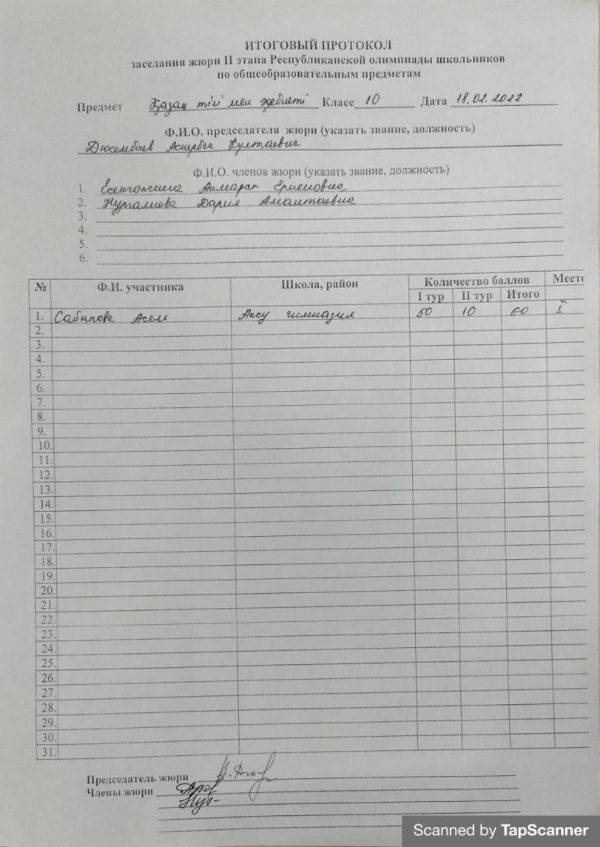 ИТОГОВЫЙ ПРОТОКОЛ
заседания жюри II этапа Республиканской олимпиады школьников
по общеобразовательным предметам
Предмет Қазақ тілі мен әдебиеті Класс 10 Дата 18.02.2022
Ф.И.О. председателя жюри (указать звание, должность)
Дюсембаев
Ф.И.О. членов жюри (указать звание, должность)
1. Есенгожина Ерменовна
2. Нургалиева Дария Амантаевна
3.
4.
5.
6.
№ Ф.И. участника Школа, район Количество баллов Место
I тур II тур Итого
1. Сабынова Асем Аксу гимназия 50 10 60 I
2.
3.
4.
5.
6.
7.
8.
9.
10.
11.
12.
13.
14.
15.
16.
17.
18.
19.
20.
21.
22.
23.
24.
25.
26.
27.
28.
29.
30.
31.
Председатель жюри
Члены жюри
Scanned by TapScanner